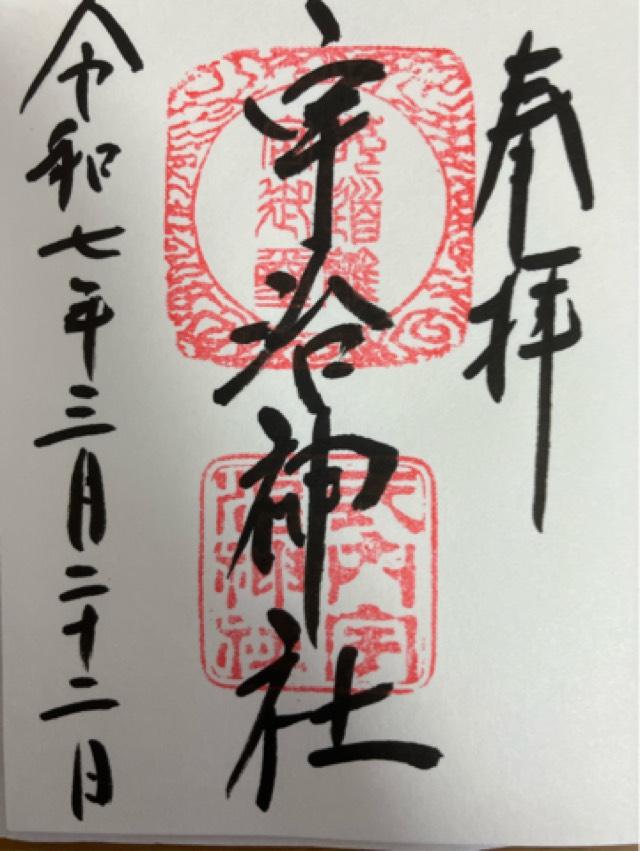 奉拝
宇治神社
令和七年三月二十二日